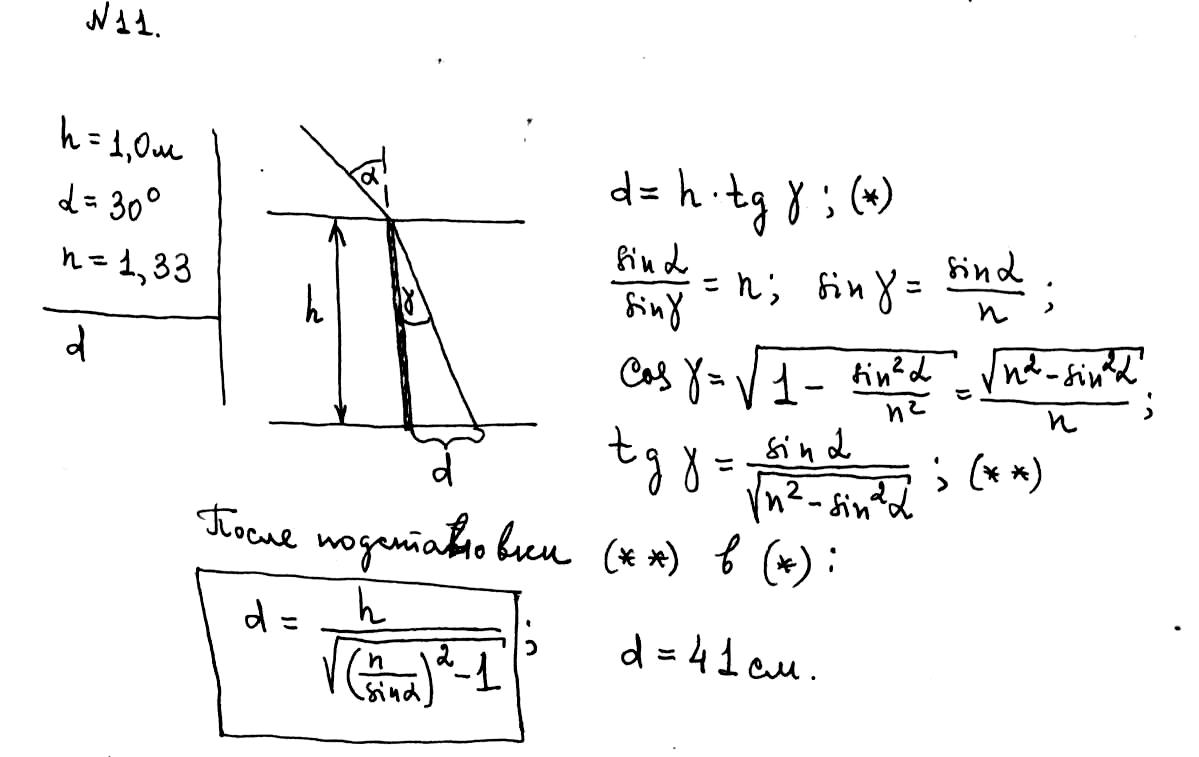 N11.
h = 1,0м
α = 30°
n = 1,33
d
α
h
γ
d
d = h · tg γ ; (*)
sin α / sin γ = n; sin γ = sin α / n ;
cos γ = √(1 - sin²α / n²) = √(n² - sin²α) / n ;
tg γ = sin α / √(n² - sin²α) ; (**)
После подстановки (**) в (*) :
d = h / √((n / sin α)² - 1) ; d = 41 см.